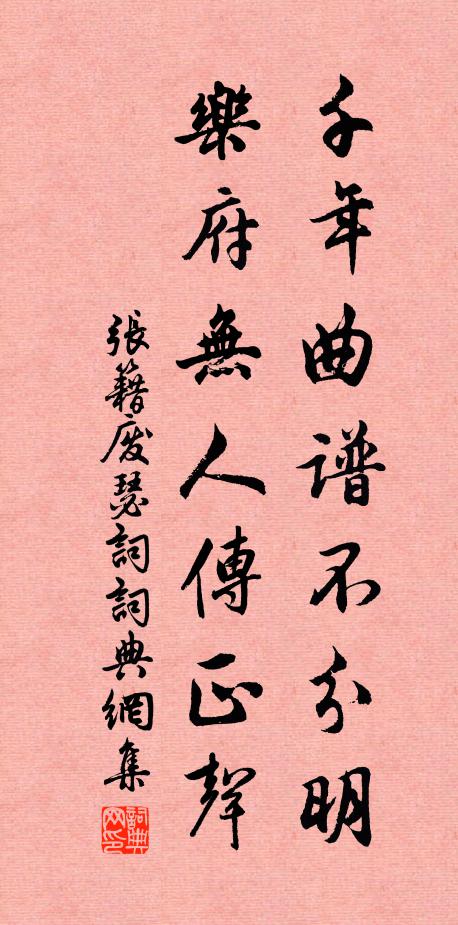 千年曲譜不分明
樂府無人傳正聲
張籍廢瑟詞詞典網集
詞典网印